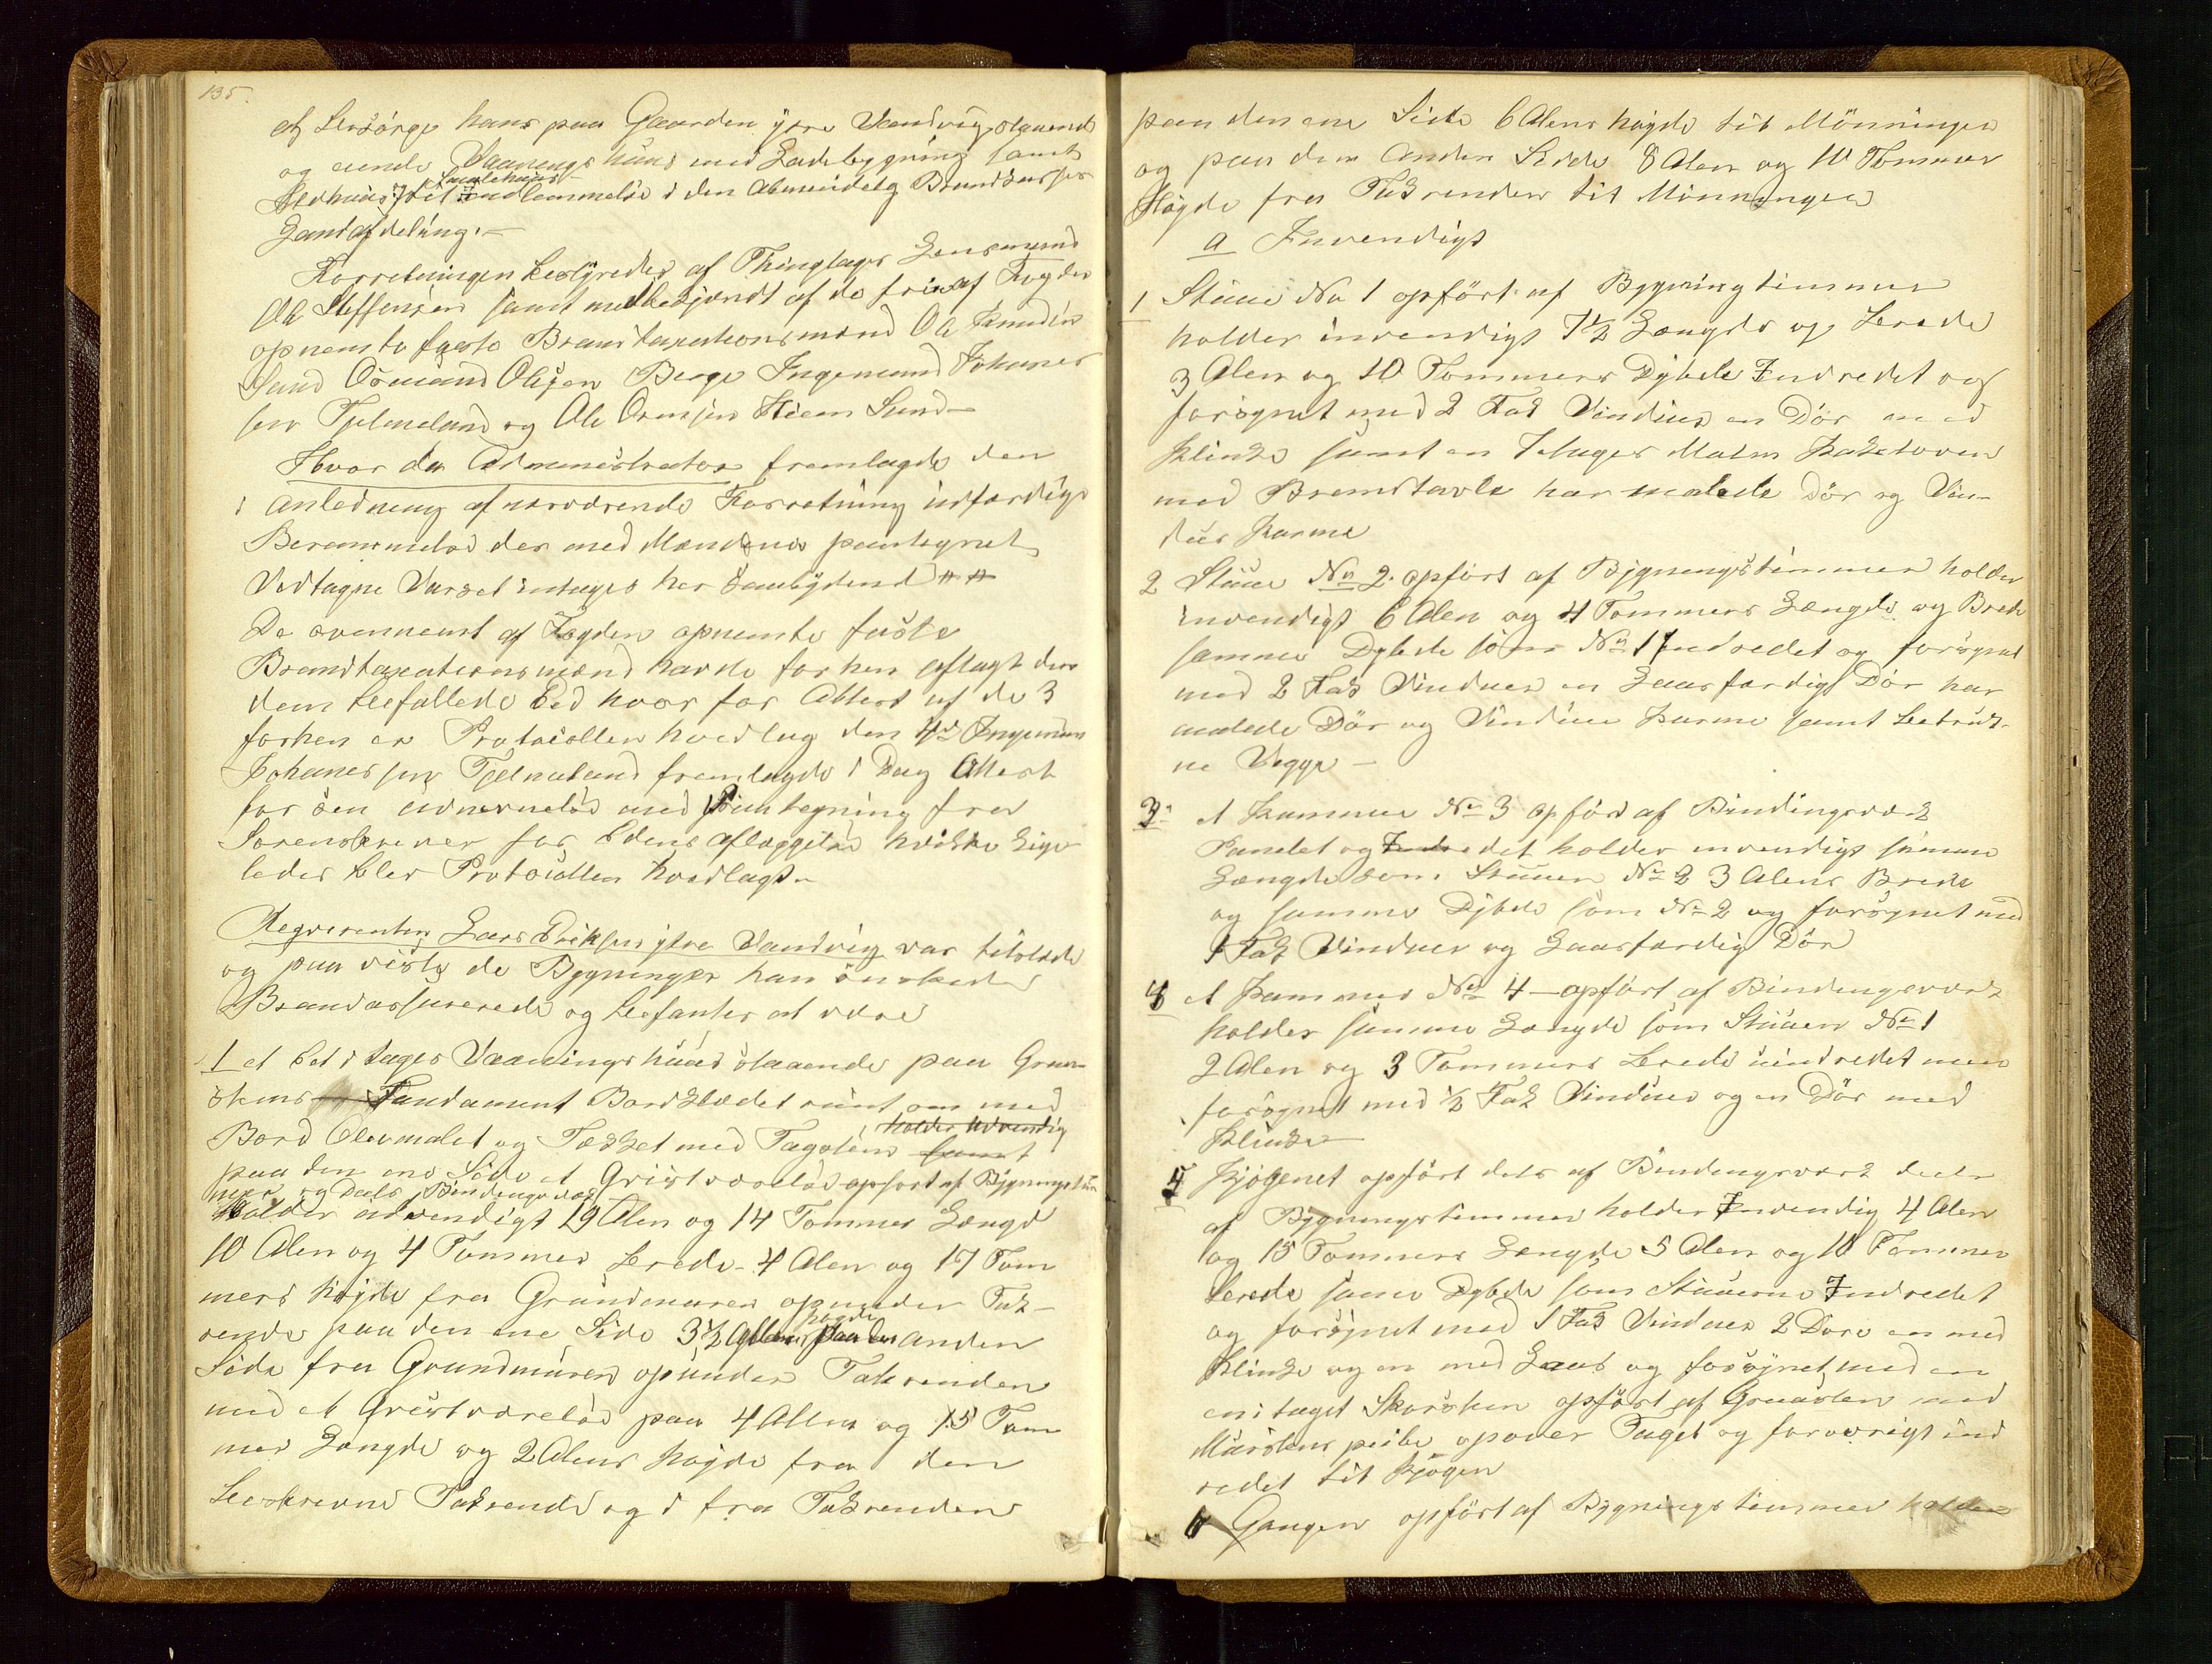 135.
af hans paa Gaarden ytre Vandvig staaende
og eiende Vaaningshuus med Ladebygning samt
Smalehuus
Ildhuus til Indlemmelse i den Almindelig Brandkasses
Landafdeling.—
Forretningen bestyredes af Thinglagets Lensmand
Ole Steffensen samt medbetjendt af de fire af Fogden
opnemte faste Brandtaxationsmænd Ole Knudsen
Sand Osmund Olsen Berge Ingemund Johanes
sen Tjelmeland og Ole Ormsen Steen Sund—
Hvor da Administrator fremlagde den
i Anledning af nærværende Forretning udfærdige
Berammelse der med Mændenes paategnet
Vedtagne Varsel indtages her saalydend # #
De ovennemt af Fogden opnemte faste
Brandtaxationsmænd havde forhen aflagt den
dem befallede Ed hvor for Attest af de 3
forhen er Protocollen hvedlag den 4de Ingemun
Johanessen Tjelmeland fremlagde i Dag Attest
for sen Udnevnelse med Paategning fra
Sorenskriver for Edens aflæggelse hvilke Lige
ledes blev Protocollen hvedlagt.—
Reqverenten Lars Eriksen ytre Vandvig var tilstede
og paa viste de Bygninger han önskede
Brandassurerede og befantes at være
1 et Et i tages Vaaningshuus staaende paa Graa-
stens Fundament Bordklædet rundt om med
holder udvendig
Bord Oliemalet og Tækket med Tagsten samt
paa den ene Side et Qvistværelse opfört af Bygningstim
mer og Deels Bindingsværk
Holder udvendigt 19 Alen og 14 Tommer Længd
10 Alen og 4 Tommer brede- 4 Alen og 17 Tom
mers höjde fra Grundmuren opunder Tak-
höjde
rende paa den ene Side 3½ Alen paa den anden
Side fra Grundmuren opunder Takrenden
med et Qvistværelse paa 4 Alen og 15 Tom
mer Længde og 2 Alens höjde fra den
beskrevne Takrende og i fra Takrenden
paa den ene Side 6 Alens höjde til Mönningen
og paa den anden Side 8 Alen og 10 Tommer
Höyde fra Takrenden til Mönningen
a Invendigt
1 Stuue No 1 opfört af Bygningtimmer
holder invendigt 7½ Længde og brede
3 Alen og 10 Tommers Dybde Indredet og
forsynet med 2 Fag Vinduer en Dör med
Klinke samt en 1 etages Malm Kakelovn
med Bremstavle har malede Dör og Vin-
dues Karme
2 Stuue No 2. opfört af Bygningstimmer holder
invendigt 6 Alen og 4 Tommers Længde og Brede
samme Dybde som No 1 Indredet og forsynet
med 2 Fag Vinduer en Laasfærdig Dör har
malede Dör og Vindue Karme samt betruk-
ne Vegge —
3. et Kammer No 3 opförd af Bindingsværk
Panelet og Indredet holder invendigt samme
Længde som Stuuen No 2 3 Alens Brede
og samme Dybde som No 2 og forsynet med
1 Fag Vinduer og Laasfærdig Dör
4 et Kammer No 4 — opfört af Bindingsværk
holder samme Længde som Stuuen No 1
2 Alen og 3 Tommers brede uindredet men
forsynet med ½ Fag Vinduer og en Dör med
Klinke —
5 Kjögenet opfört dels af Bindingsværk deels
af Bygningstimmer holder Indvendig 4 Alen
og 15 Tommers Længde 5 Alen og 10 Tommer
brede samme Dybde som Stuuerne Indredet
og forsynet med 1 Fag Vinduer 2 Döre en med
Klinke og en med Laas og forsynet med en
eni taget Skorsten opfört af Graasten med
Mursteins peibe opover Taget og forövrigt ind
redet til Kjögen
6 Gangen opfört af Bygningstimmer holder